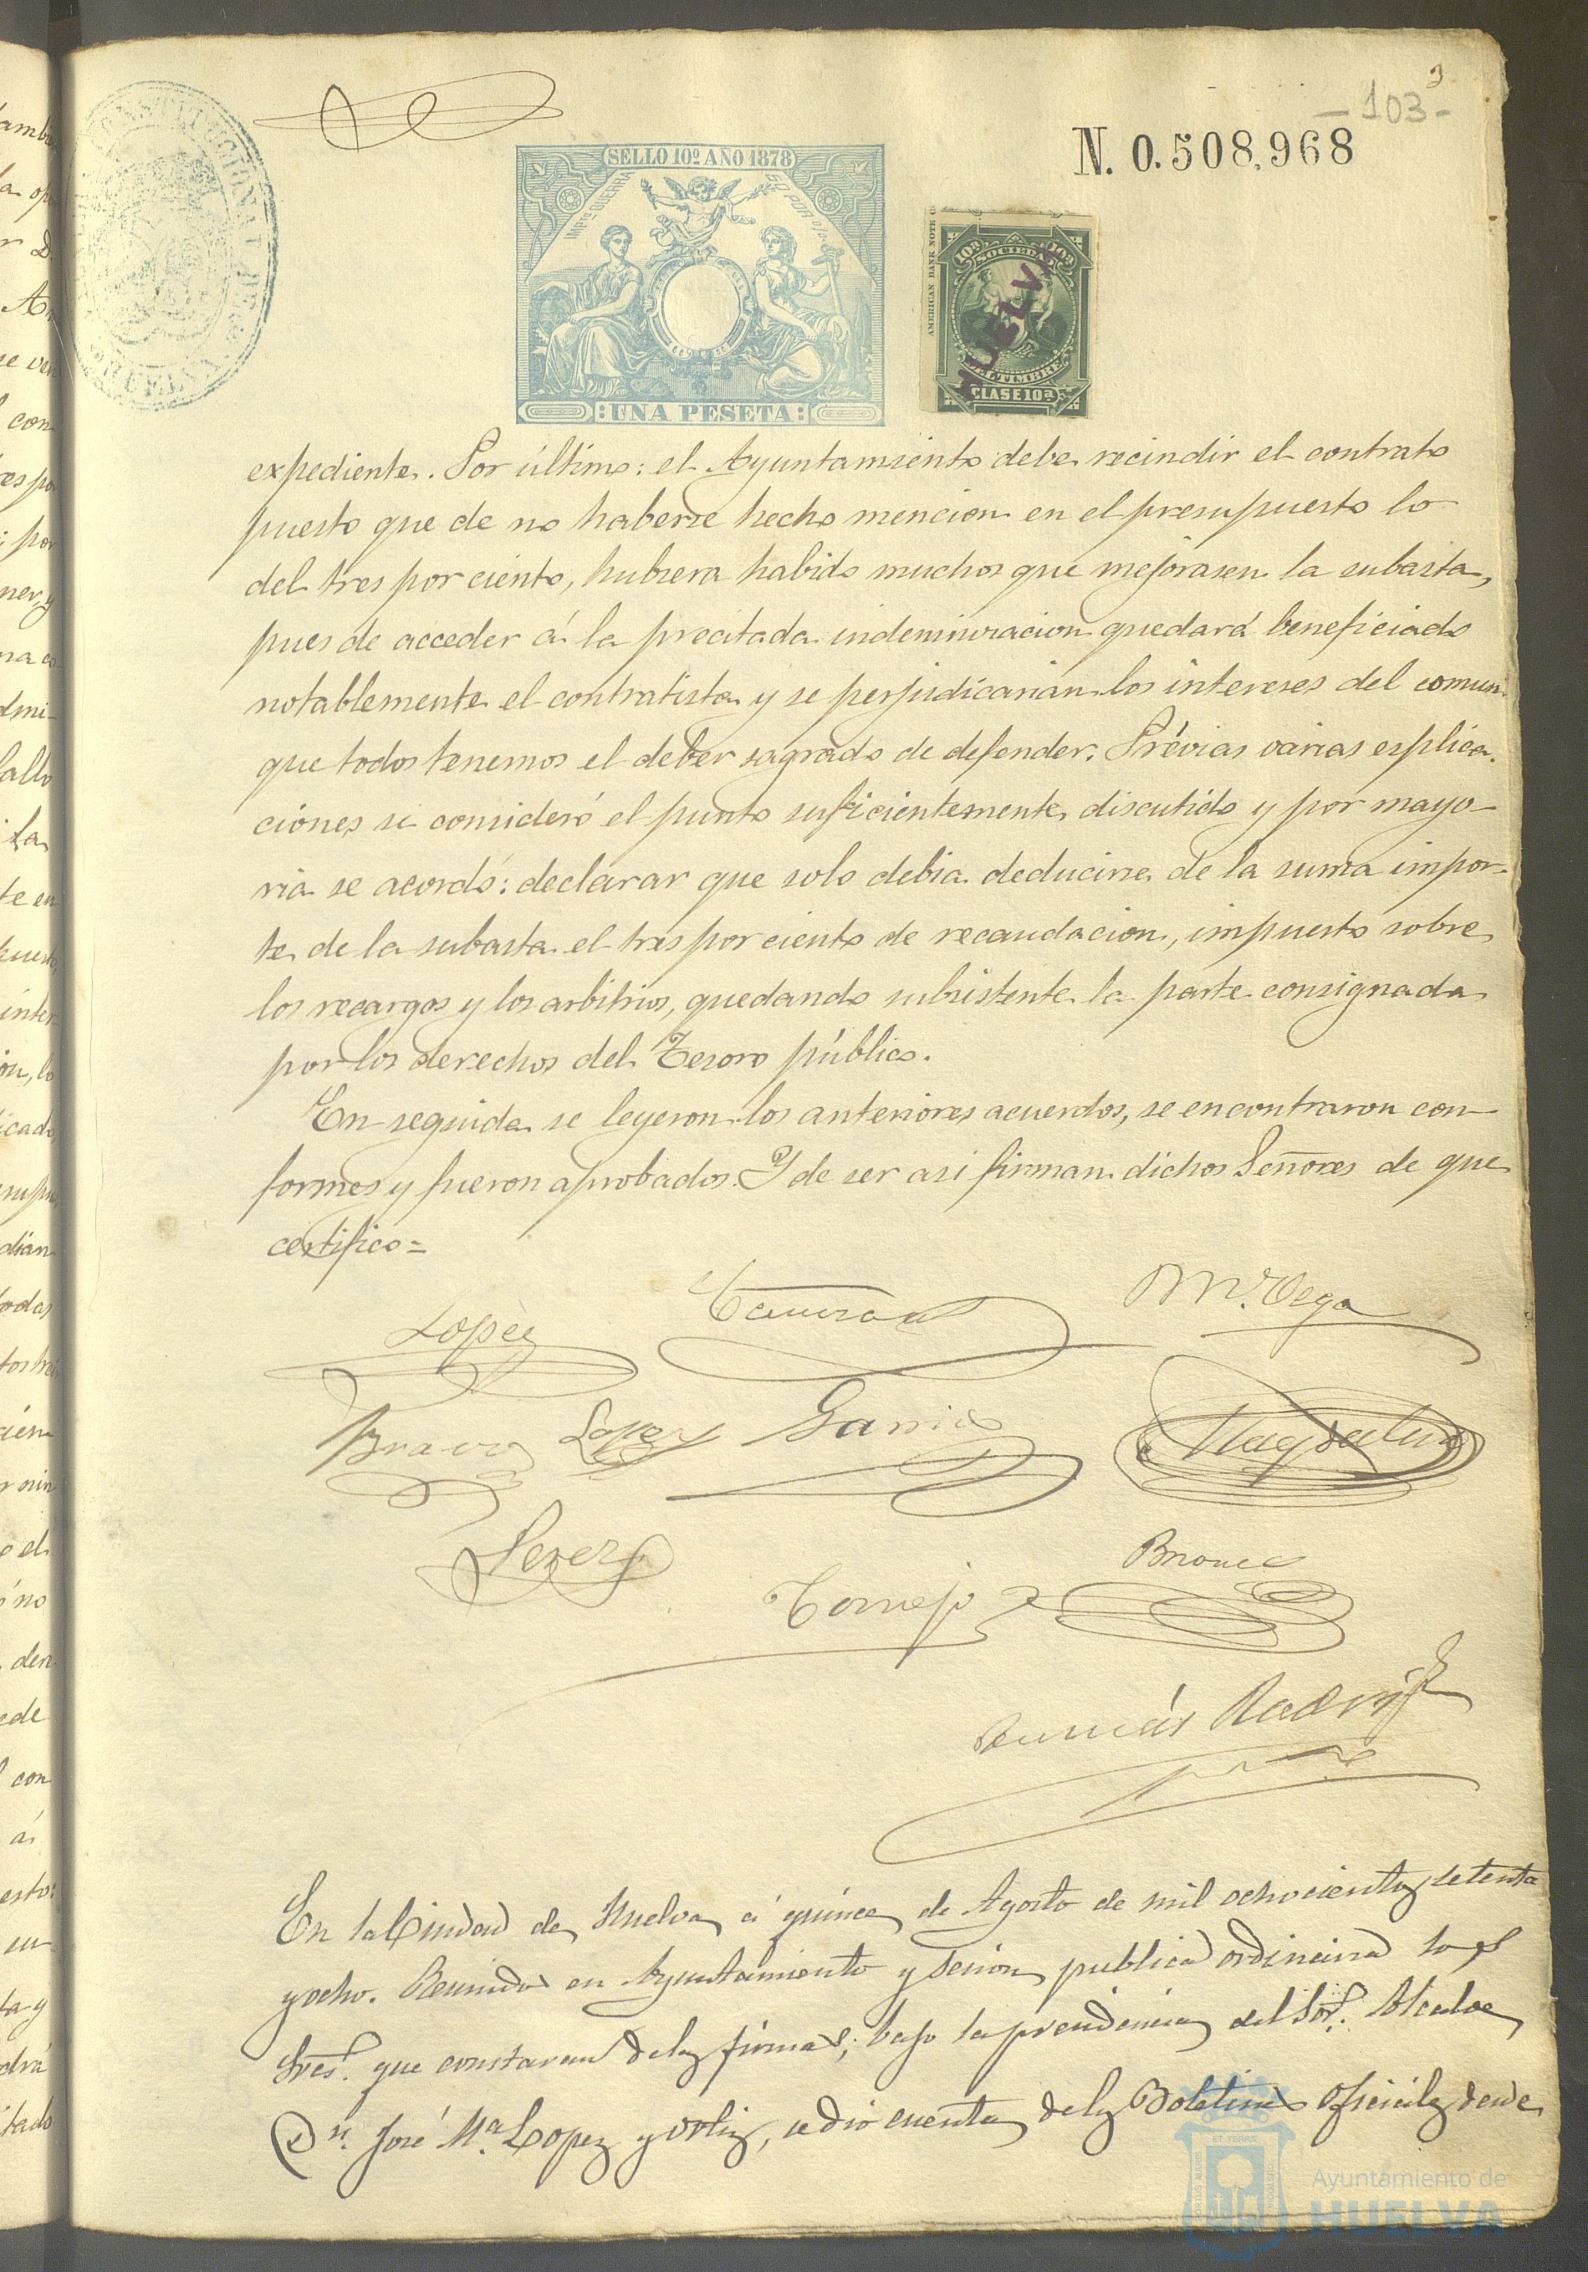 3
- 103 -
N. 0.508,968
CONSTITUCIONAL DE HUELVA
SELLO 10º AÑO 1878
IMPTO GUERRA 50 POR 0/0
UNA PESETA
AMERICAN BANK NOTE C
10ª SOCIEDAD 10ª
DEL TIMBRE
CLASE 10ª
HUELVA
expediente. Por último: el Ayuntamiento debe recindir el contrato
puesto que de no haberse hecho mencion en el presupuesto lo
del tres por ciento, hubiera habido muchos que mejorasen la subasta,
pues de acceder á la precitada indemnizacion quedará beneficiado
notablemente el contratista y se perjudicarian los intereses del comun
que todos tenemos el deber sagrado de defender. Prévias varias esplica-
ciones se consideró el punto suficientemente discutido y por mayo-
ria se acordó: declarar que solo debia deducirse de la suma impor-
te de la subasta el tres por ciento de recaudacion, impuesto sobre
los recargos y los arbitrios, quedando subsistente la parte consignada
por los derechos del Tesoro público.
En seguida se leyeron los anteriores acuerdos, se encontraron con-
formes y fueron aprobados. Y de ser asi firman dichos Señores de que
certifico=
Lopez
M. Vega
Bravo Lopez Garcia
Perez
Tornejo
En la Ciudad de Huelva á quince de Agosto de mil ochocientos setenta
y ocho. Reunidos en Ayuntamiento y sesion publica ordinaria los
Sres. que constaran de las firmas, bajo la presidencia del Sor. Alcalde
Dn. José Mª Lopez y Ortiz, se dió cuenta de los Boletines Oficiales desde
Ayuntamiento de
HUELVA